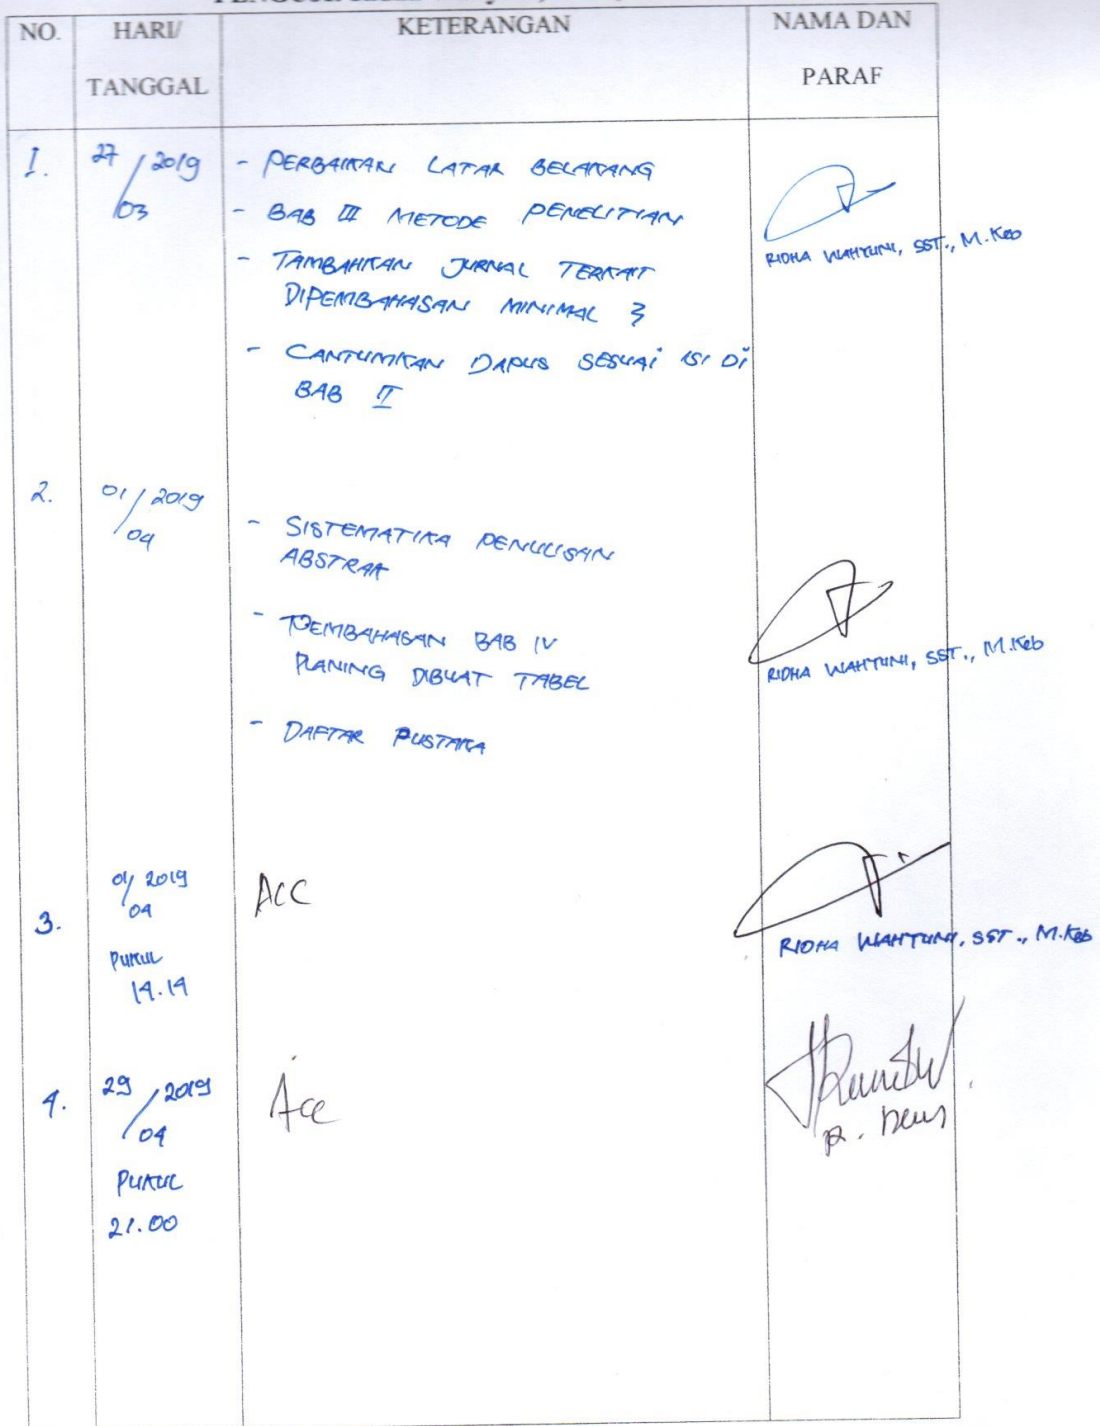 NO.
HARI/
TANGGAL
KETERANGAN
NAMA DAN
PARAF
1.
27/03 2019
- PERBAIKAN LATAR BELAKANG
- BAB III METODE PENELITIAN
- TAMBAHKAN JURNAL TERKAIT
DIPEMBAHASAN MINIMAL 3
- CANTUMKAN DAPUS SESUAI ISI DI
BAB II
RIDHA WAHYUNI, SST., M.Keb
2.
01/04 2019
- SISTEMATIKA PENULISAN
ABSTRAK
- PEMBAHASAN BAB IV
PLANING DIBUAT TABEL
- DAFTAR PUSTAKA
RIDHA WAHYUNI, SST., M.Keb
3.
01/04 2019
PUKUL
14.14
ACC
RIDHA WAHYUNI, SST., M.Keb
4.
29/04 2019
PUKUL
21.00
Acc